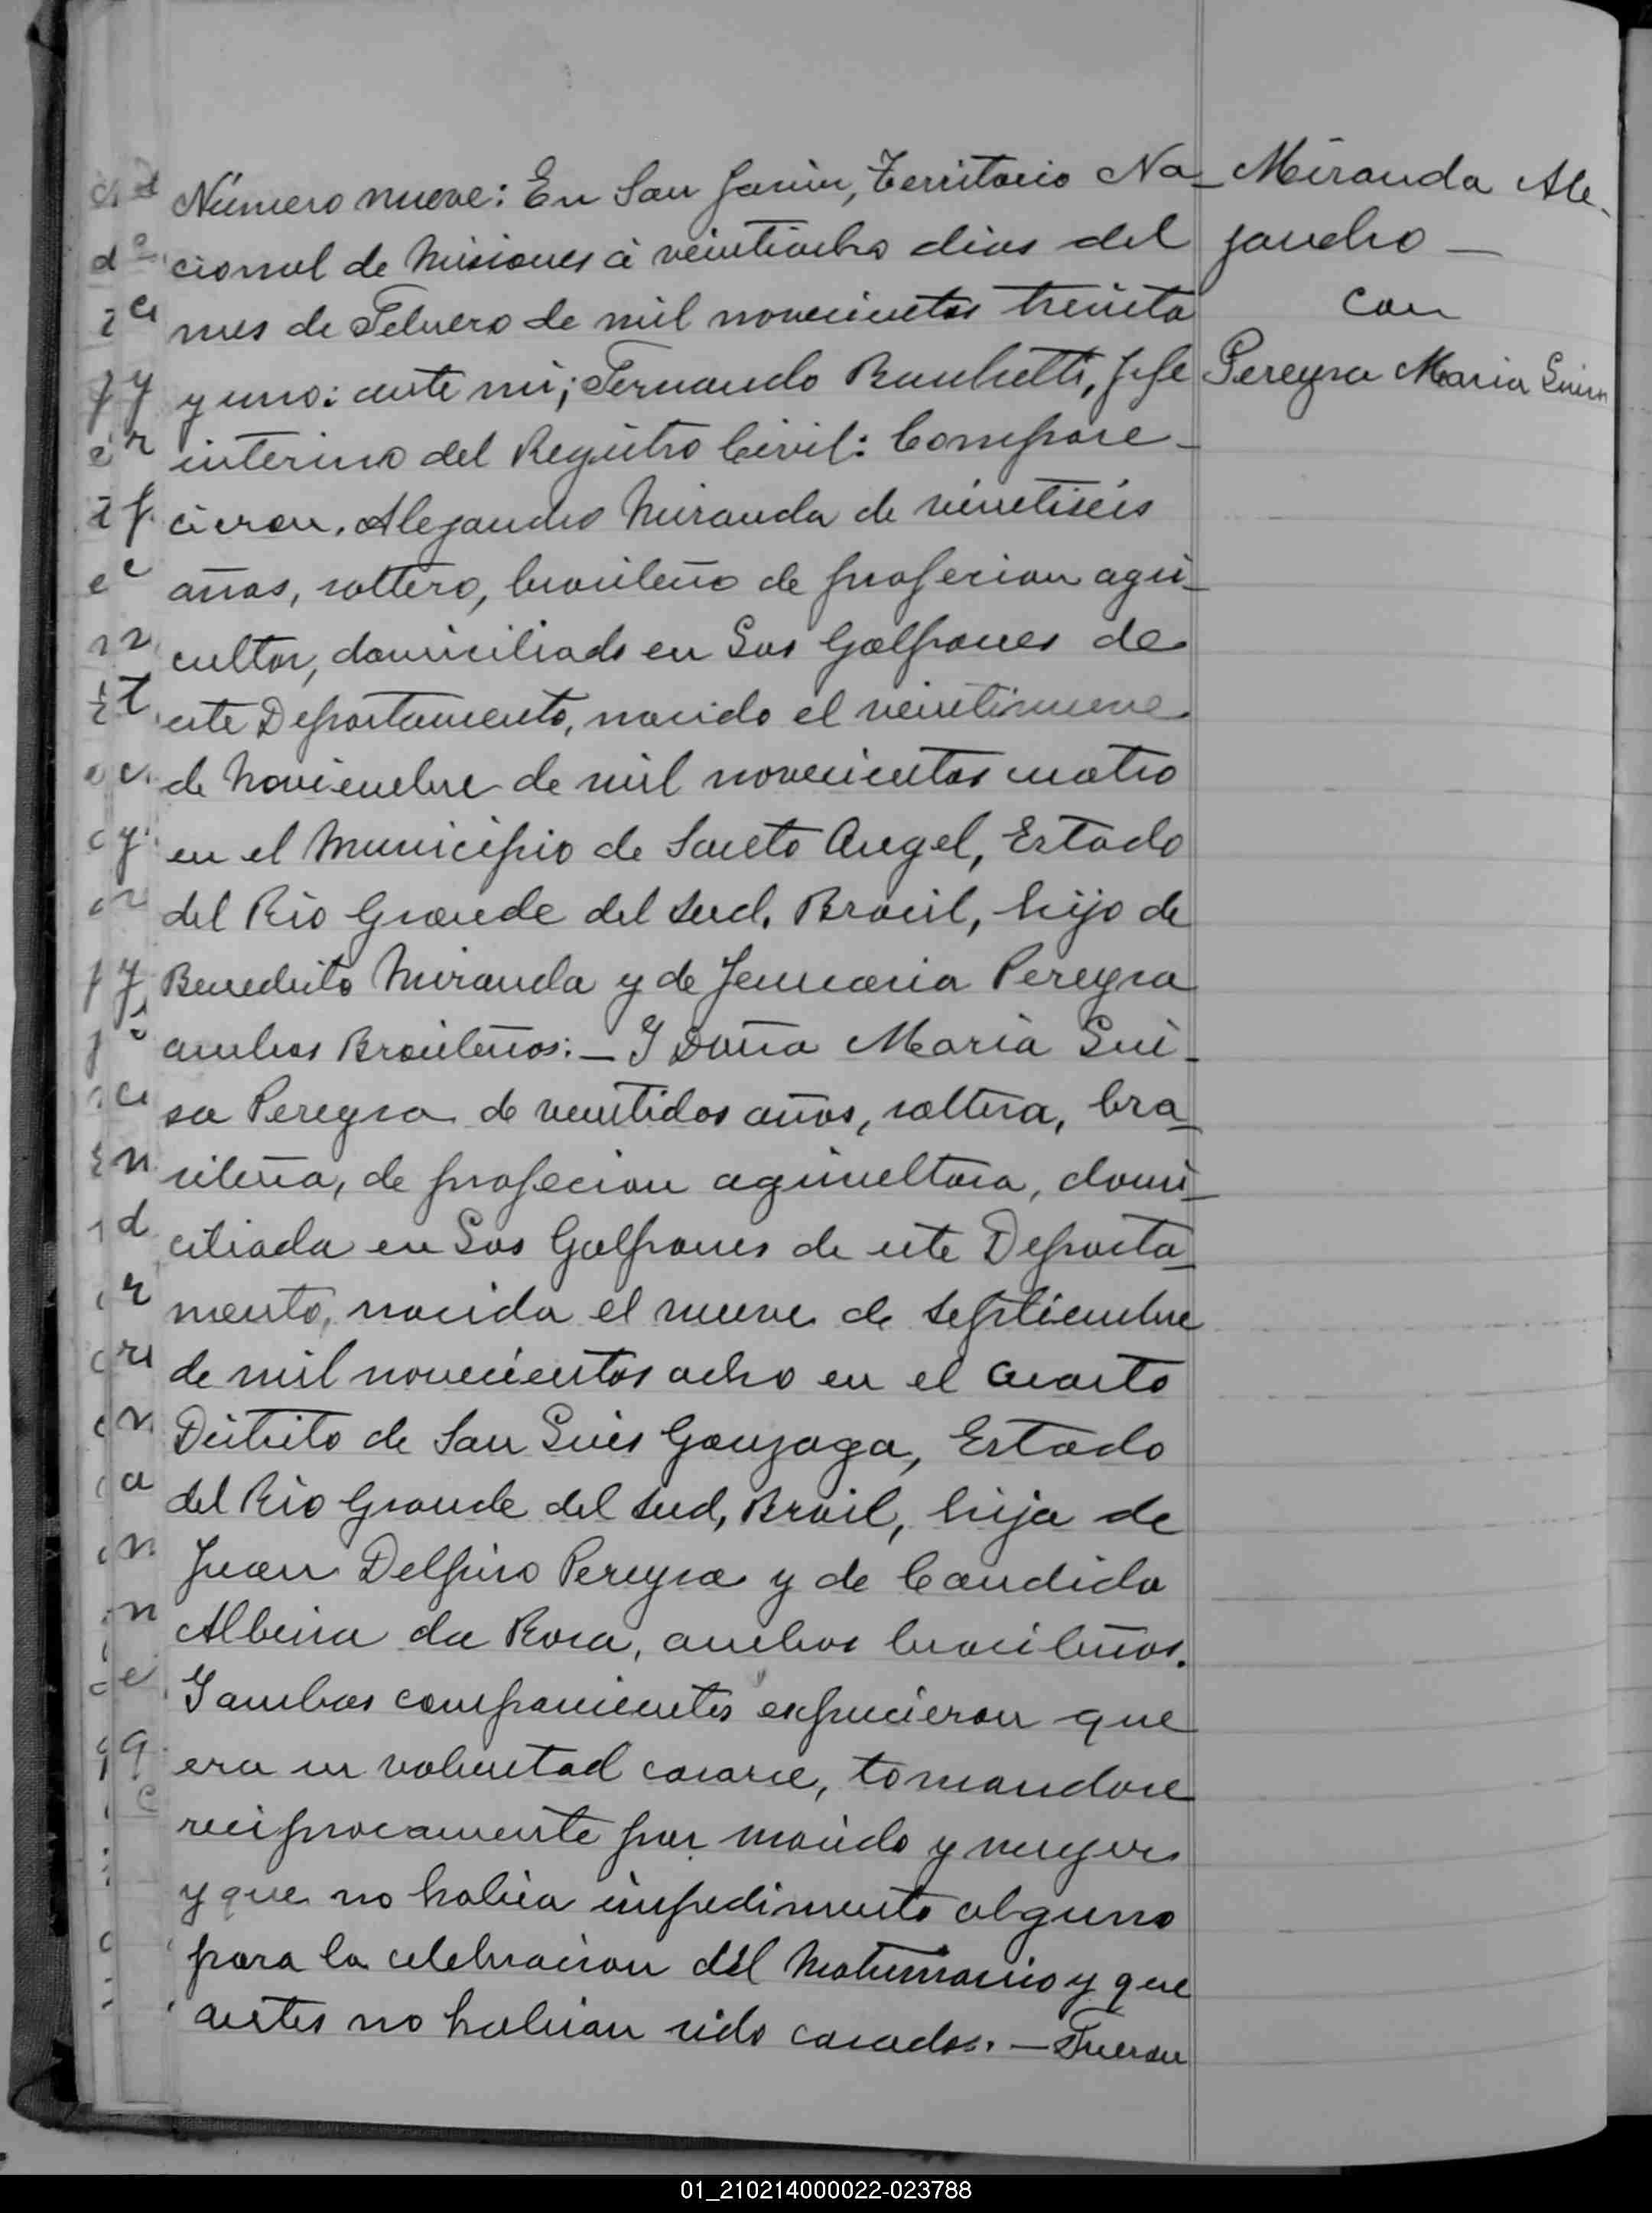 Número nueve: En San Javier, Territorio Na-
cional de Misiones á veintiocho dias del
mes de Febrero de mil novecientos treinta
y uno: ante mi; Fernando Jefe
interino del Registro Civil: Compare-
cieron. Alejandro Miranda de veintiséis
años, soltero, brasileño de profesion agri-
cultor, domiciliado en Los Galpones de
este Departamento, nacido el veintinueve
de Noviembre de mil novecientos cuatro
en el Municipio de Santo Angel, Estado
del Rio Grande del Sud, Brasil, hijo de
Benedicto Miranda y de Pereyra
ambos Brasileños:_ Y Doña Maria Lui-
sa Pereyra de veintidos años, soltera, bra-
sileña, de profecion agricultora, domi-
ciliada en Los Galpones de este Departa-
mento, nacida el nueve de Septiembre
de mil novecientos ocho en el Cuarto
Distrito de San Luis Gonzaga, Estado
del Rio Grande del Sud, Brasil, hija de
Juan Delfino Pereyra y de Candida
Albina da Rosa, ambos brasileños.
Y ambos comparecientes expucieron que
era su voluntad casarse, tomandose
reciprocamente por marido y muger
y que no habia impedimento alguno
para la celebracion del Matrimonio y que
antes no habian sido casados. — Fueron
Miranda Ale-
jandro —
con
Pereyra Maria Luisa
01_210214000022-023788